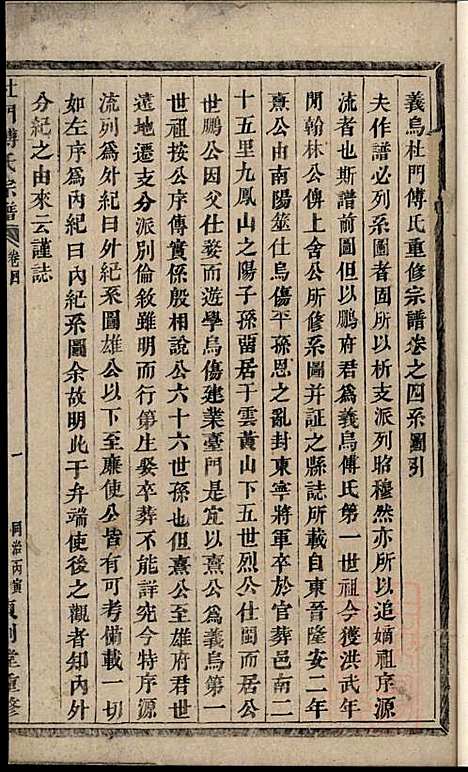 義烏杜門傅氏重修宗譜卷之四系圖引
夫作譜必列系圖者固所以析支派列昭穆然亦所以追嫡祖序源
流者也斯譜前圖但以鵬府君為義烏傅氏第一世祖今獲洪武年
閒翰林公俾上舍公所修系圖并証之縣誌所載自東晉隆安二年
熹公由南陽筮仕烏傷平孫恩之亂封東寧將軍卒於官葬邑南二
十五里九鳳山之陽子孫留居于雲黃山下五世烈公仕閩而居公
世鵬公因父仕婺而遊學烏傷建業臺門是宜以熹公為義烏第一
世祖按公序傅實係殷相說公六十六世孫也但熹公至雄府君世
遠地遷支分派別倫敘雖明而行第生娶卒葬不能詳究今特序源
流列為外紀曰外紀系圖雄公以下至廉使公皆有可考備載一切
如左序為內紀曰內紀系圖余故明此于弁端使後之觀者知內外
分紀之由來云謹誌
杜門傅氏宗譜
卷四
一
同治丙寅
重修